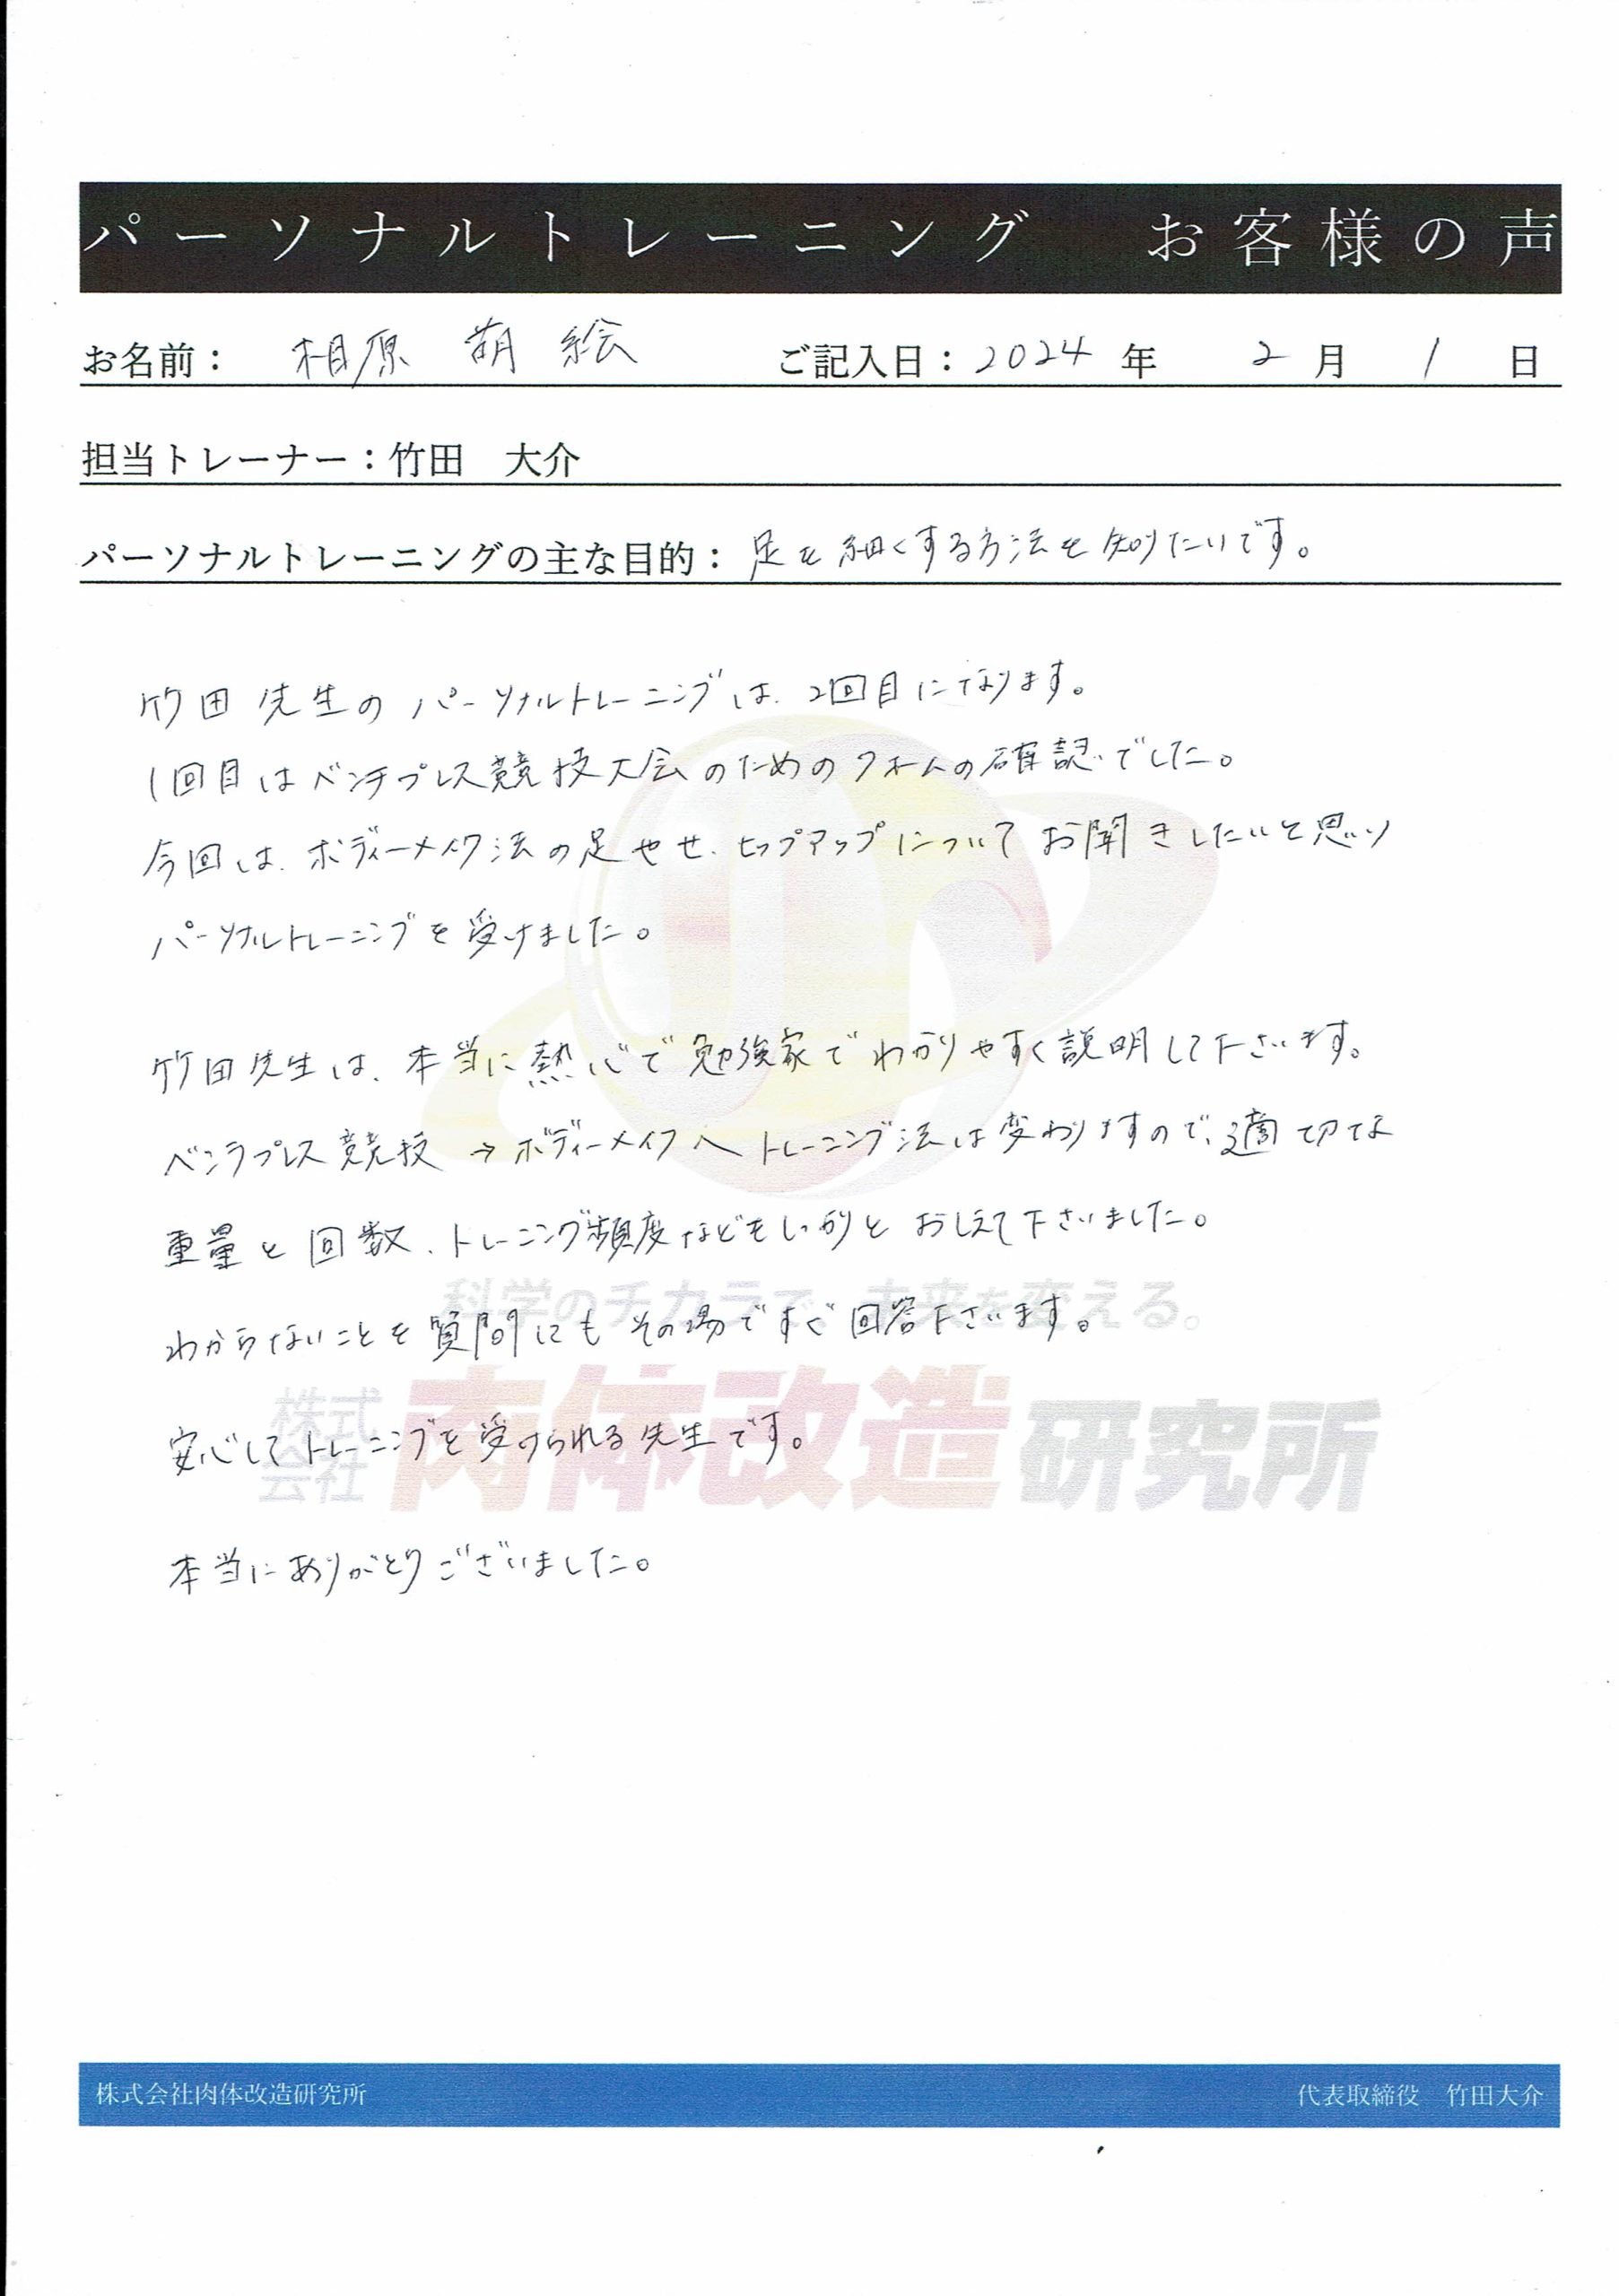 パーソナルトレーニング　お客様の声
お名前： 相原 萌絵 ご記入日：2024 年 2 月 1 日
担当トレーナー：竹田　大介
パーソナルトレーニングの主な目的： 足を細くする方法を知りたいです。
竹田先生のパーソナルトレーニングは、2回目になります。
1回目はベンチプレス競技大会のためのフォームの確認でした。
今回は、ボディーメイク法の足やせ、ヒップアップについてお聞きしたいと思い
パーソナルトレーニングを受けました。
竹田先生は、本当に熱心で勉強家でわかりやすく説明して下さいます。
ベンチプレス競技→ボディーメイクへトレーニング法は変わりますので、適切な
重量と回数、トレーニング頻度などもしっかりとおしえて下さいました。
わからないことを質問にもその場ですぐ回答下さいます。
科学のチカラで、未来を変える。
安心してトレーニングを受けられる先生です。
株式会社 肉体改造研究所
本当にありがとうございました。
株式会社肉体改造研究所 代表取締役　竹田大介